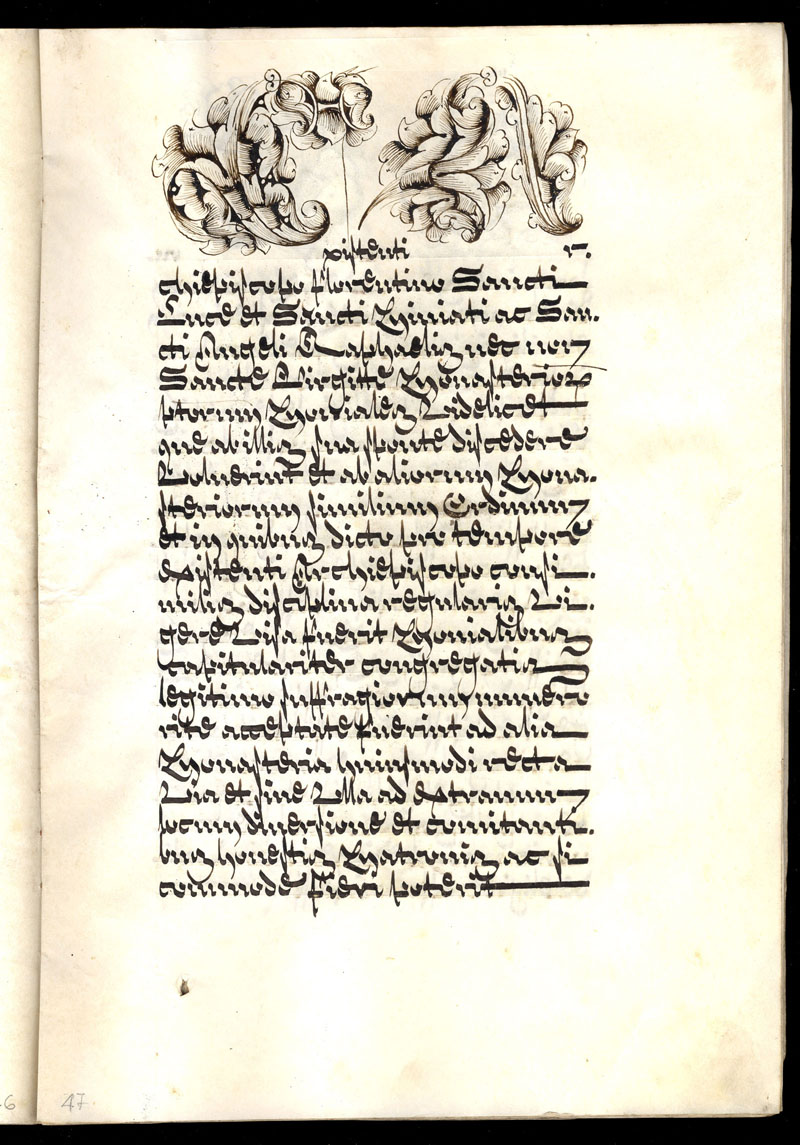 E xistenti Ar.
chiepiscopo Florentino Sancti
Luce et Sancti Miniati ac San.
cti Angeli Raphaelis nec non
Sancte Birgitte Monasteriorum
ptorum Moniales Videlicet
que ab illis sua sponte discedere
Voluerint et ab aliorum Mona.
steriorum similium Ordinum
et in quibus dicto pro tempore
existenti Archiepiscopo consi.
milis disciplina regularis Vi.
gere Visa fuerit Monialibus
capitulariter congregatis
legitimo suffragiorum numero
rite acceptate fuerint ad alia
Monasteria huiusmodi recta
Via et sine Ulla ad extraneum
locum diversione et comitanti.
bus honestis Matronis ac si
commode fieri poterit
47